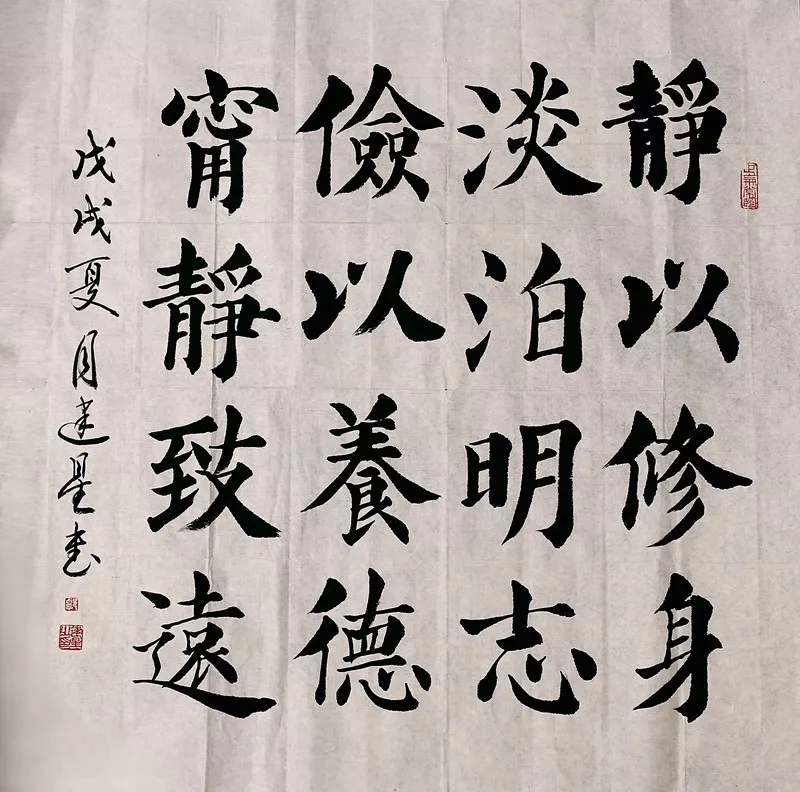 靜以修身
淡泊明志
儉以養德
甯靜致遠
戊戌夏月建星書